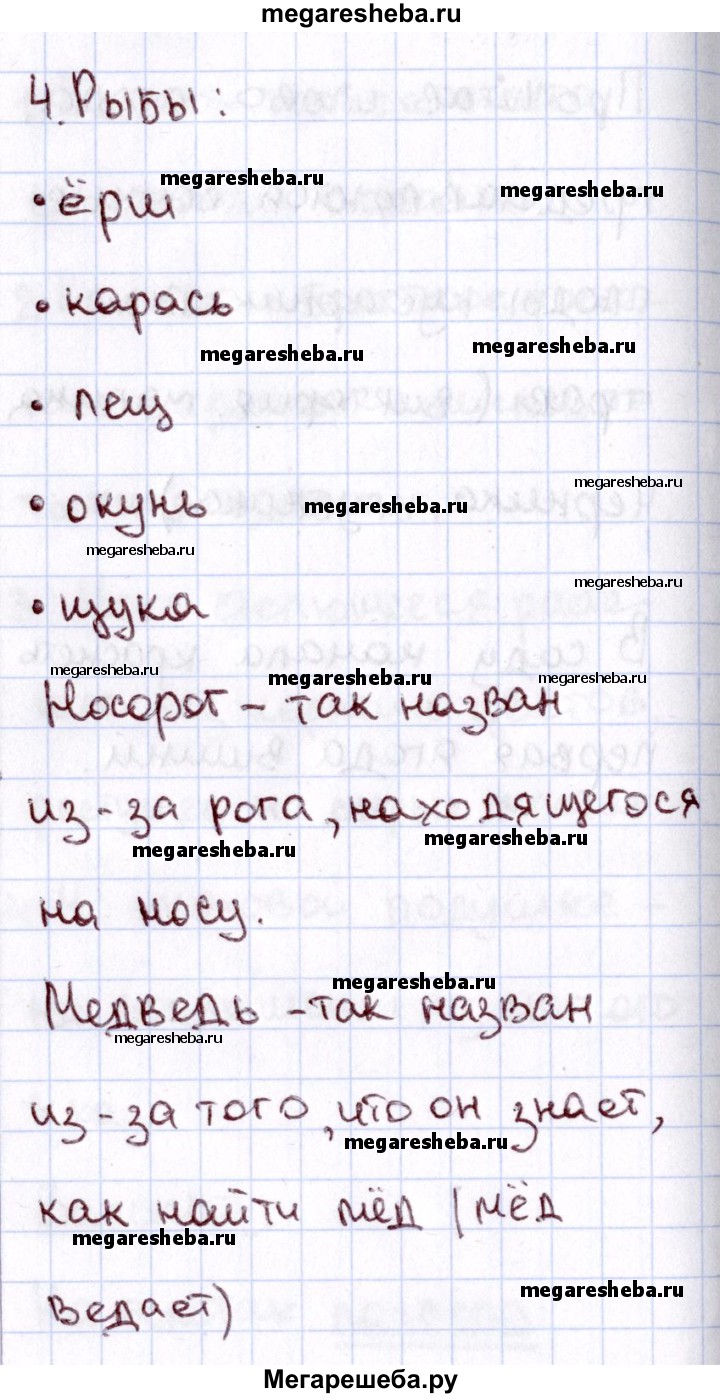 megaresheba.ru
4. Рыбы:
megaresheba.ru
megaresheba.ru
• ёрш
• карась
megaresheba.ru
megaresheba.ru
• лещ
megaresheba.ru
• окунь
megaresheba.ru
megaresheba.ru
megaresheba.ru
• щука
megaresheba.ru
megaresheba.ru
megaresheba.ru
Носорог – так назван
из-за рога, находящегося
megaresheba.ru
megaresheba.ru
на носу.
megaresheba.ru
Медведь – так назван
megaresheba.ru
из-за того, что он знает,
megaresheba.ru
как найти мёд (мёд
megaresheba.ru
megaresheba.ru
ведает)
Мегарешеба.ру